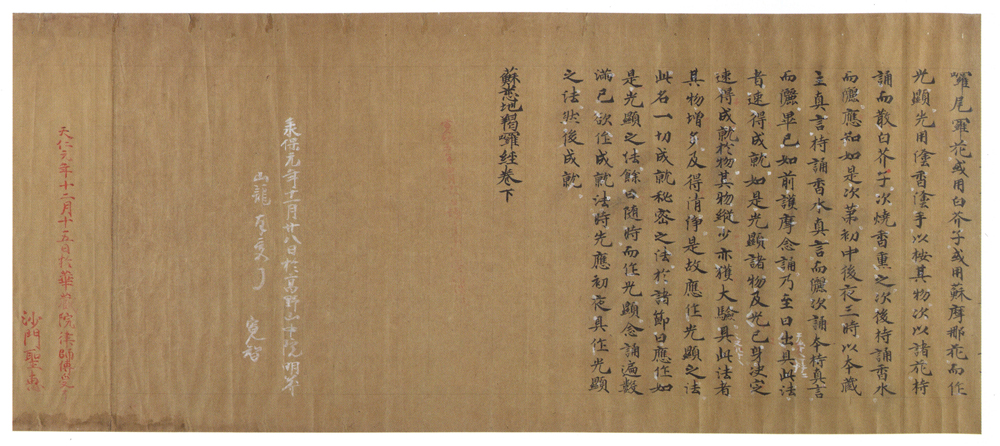 囉尾囉花或用白芥子或用蘇摩那花而作
光顯光用塗香塗手以按其物次以諸花持
誦而散白芥子次燒香熏之次後持誦香水
而灑應知如是次第初中後夜三時以本藏
主真言持誦香水真言而灑次誦本持真言
而灑畢已如前護摩念誦乃至日出具此法
者速得成就如是光顯諸物及光己身決定
速得成就於物其物縱少亦獲大驗具此法者
其物增多及得清淨是故應作光顯之法
此名一切成就秘密之法於諸節日應作如
是光顯之法餘日隨時而作光顯念誦遍數
滿已欲作成就法時先應初夜具作光顯
之法然後成就
蘇悉地羯囉經卷下
承保元年十一月廿八日於高野山中院
山龍
天仁元年十二月十五日於華院
沙門聖惠